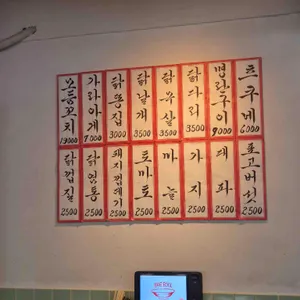 모듬꼬치 13000
가라아게 7000
닭똥집 3000
닭날개 3500
닭목살 3500
닭다리 3500
명란구이 9000
츠쿠네 6000
닭껍질 2500
닭염통 2500
돼지껍데기 2500
토마토 2500
마늘 2500
가지 2500
대파 2500
표고버섯 2500